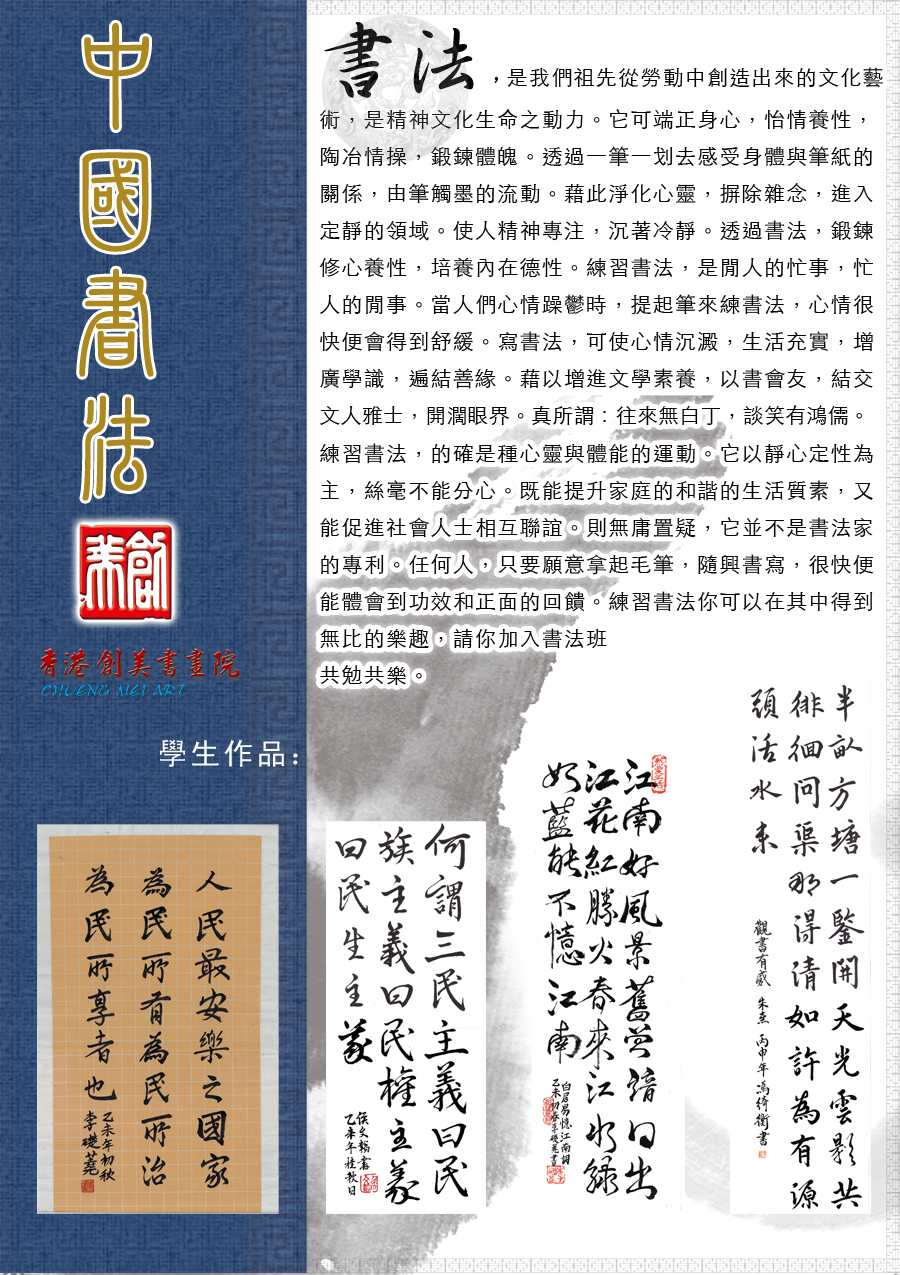 中國書法
創美
香港創美書畫院
CHUENG MEI ART
書法，是我們祖先從勞動中創造出來的文化藝
術，是精神文化生命之動力。它可端正身心，怡情養性，
陶冶情操，鍛鍊體魄。透過一筆一划去感受身體與筆紙的
關係，由筆觸墨的流動。藉此淨化心靈，摒除雜念，進入
定靜的領域。使人精神專注，沉著冷靜。透過書法，鍛鍊
修心養性，培養內在德性。練習書法，是閒人的忙事，忙
人的閒事。當人們心情躁鬱時，提起筆來練書法，心情很
快便會得到舒緩。寫書法，可使心情沉澱，生活充實，增
廣學識，遍結善緣。藉以增進文學素養，以書會友，結交
文人雅士，開濶眼界。真所謂：往來無白丁，談笑有鴻儒。
練習書法，的確是種心靈與體能的運動。它以靜心定性為
主，絲毫不能分心。既能提升家庭的和諧的生活質素，又
能促進社會人士相互聯誼。則無庸置疑，它並不是書法家
的專利。任何人，只要願意拿起毛筆，隨興書寫，很快便
能體會到功效和正面的回饋。練習書法你可以在其中得到
無比的樂趣，請你加入書法班
共勉共樂。
學生作品：
人民最安樂之國家
為民所有為民所治
為民所享者也
乙未年初秋
李礎堯
何謂三民主義曰民
族主義曰民權主義
曰民生主義
乙未年桂秋日
江南好風景舊曾諳日出
江花紅勝火春來江水綠
如藍能不憶江南
白居易憶江南詞
乙未初春李礎堯書
半畝方塘一鑒開天光雲影共
徘徊問渠那得清如許為有源
頭活水來
觀書有感 朱熹 丙申年馮綺衡書